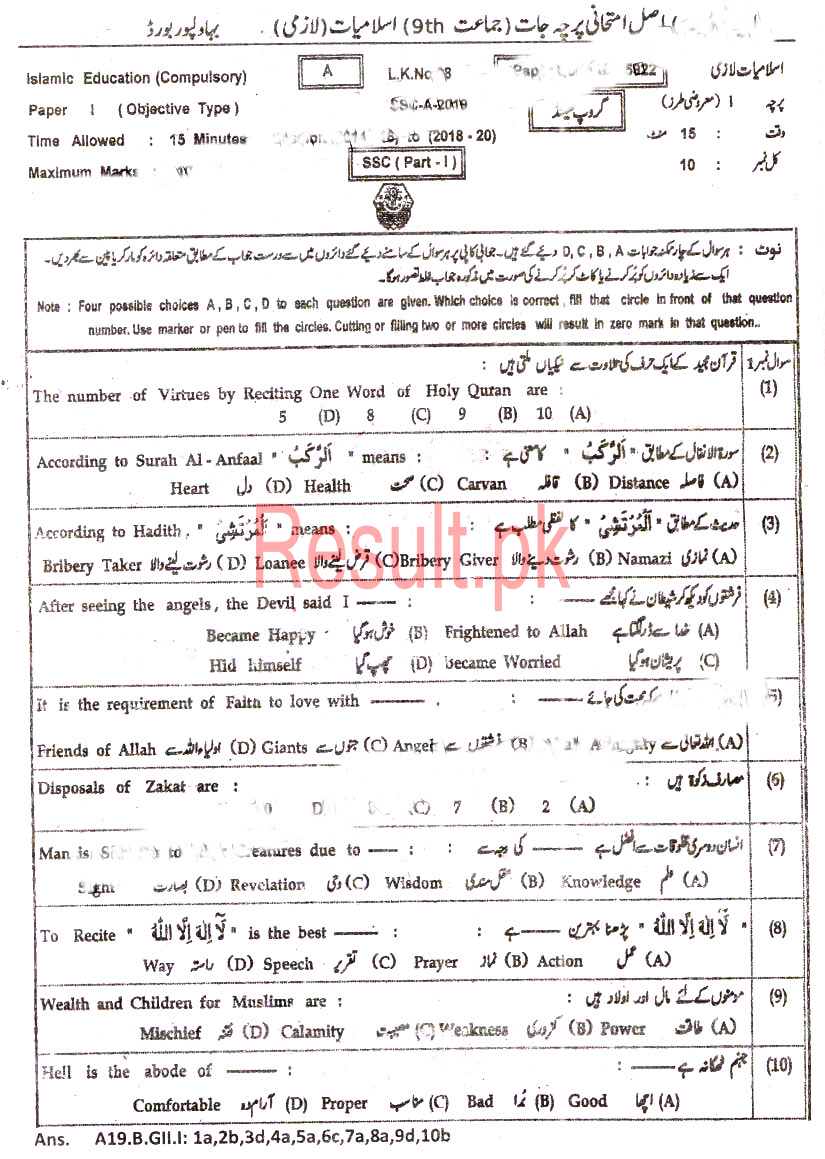 اصل امتحانی پرچہ جات (جماعت 9th) اسلامیات (لازمی) . بہاولپور بورڈ
Islamic Education (Compulsory) A L.K.No. اسلامیات لازمی
Paper I ( Objective Type ) SSC-A-2019 گروپ سیکنڈ پرچہ I (معروضی طرز)
Time Allowed : 15 Minutes (2018 - 20) وقت : 15 منٹ
Maximum Marks : SSC ( Part - I ) کل نمبر : 10
نوٹ : ہر سوال کے چار ممکنہ جوابات D, C, B, A دیے گئے ہیں۔ جوابی کاپی پر ہر سوال کے سامنے دیے گئے دائروں میں سے درست جواب کے مطابق متعلقہ دائرہ کو مارکر یا پین سے بھر دیں۔
ایک سے زیادہ دائروں کو پُر کرنے یا کاٹ کر پُر کرنے کی صورت میں مذکورہ جواب غلط تصور ہوگا۔
Note : Four possible choices A , B , C , D to each question are given. Which choice is correct , fill that circle in front of that question
number. Use marker or pen to fill the circles. Cutting or filling two or more circles will result in zero mark in that question..
سوال نمبر 1 قرآن مجید کے ایک حرف کی تلاوت سے نیکیاں ملتی ہیں :
(1)
The number of Virtues by Reciting One Word of Holy Quran are :
5 (D) 8 (C) 9 (B) 10 (A)
(2) سورۃ الانفال کے مطابق " اَلرَّکْبُ " کا معنی ہے :
According to Surah Al - Anfaal " اَلرَّکْبُ " means :
Heart دل (D) Health صحت (C) Carvan قافلہ (B) Distance فاصلہ (A)
(3) حدیث کے مطابق " اَلْمُرْتَشِیْ " کا لفظی مطلب ہے :
According to Hadith , " اَلْمُرْتَشِیْ " means :
Bribery Taker رشوت لینے والا (D) Loanee قرض لینے والا (C) Bribery Giver رشوت دینے والا (B) Namazi نمازی (A)
(4) فرشتوں کو دیکھ کر شیطان نے کہا مجھے —— :
After seeing the angels, the Devil said I —— :
Became Happy خوش ہوگیا (B) Frightened to Allah خدا سے ڈر لگتا ہے (A)
Hid himself چھپ گیا (D) became Worried پریشان ہوگیا (C)
5) کہ محبت کی جائے —— :
It is the requirement of Faith to love with —— .
Friends of Allah اولیاء اللہ سے (D) Giants جنوں سے (C) Angel فرشتوں سے (B) اللہ تعالیٰ سے (A)
(6) مصارف زکوٰۃ ہیں :
Disposals of Zakat are :
(C) 7 (B) 2 (A)
(7) انسان دوسری مخلوقات سے افضل ہے —— کی وجہ سے :
Man is to due to —— :
Sight بصارت (D) Revelation وحی (C) Wisdom عقل مندی (B) Knowledge علم (A)
(8) " لَآ اِلٰهَ اِلَّا اللّٰهُ " پڑھنا بہترین —— ہے :
To Recite " لَآ اِلٰهَ اِلَّا اللّٰهُ " is the best —— :
Way راستہ (D) Speech تقریر (C) Prayer نماز (B) Action عمل (A)
(9) مومنوں کے لئے مال اور اولاد ہیں :
Wealth and Children for Muslims are :
Mischief فتنہ (D) Calamity مصیبت (C) Weakness کمزوری (B) Power طاقت (A)
(10) جہنم ٹھکانہ ہے —— :
Hell is the abode of —— :
Comfortable آرام دہ (D) Proper مناسب (C) Bad بُرا (B) Good اچھا (A)
Ans. A19.B.GII.I: 1a,2b,3d,4a,5a,6c,7a,8a,9d,10b
Result.pk